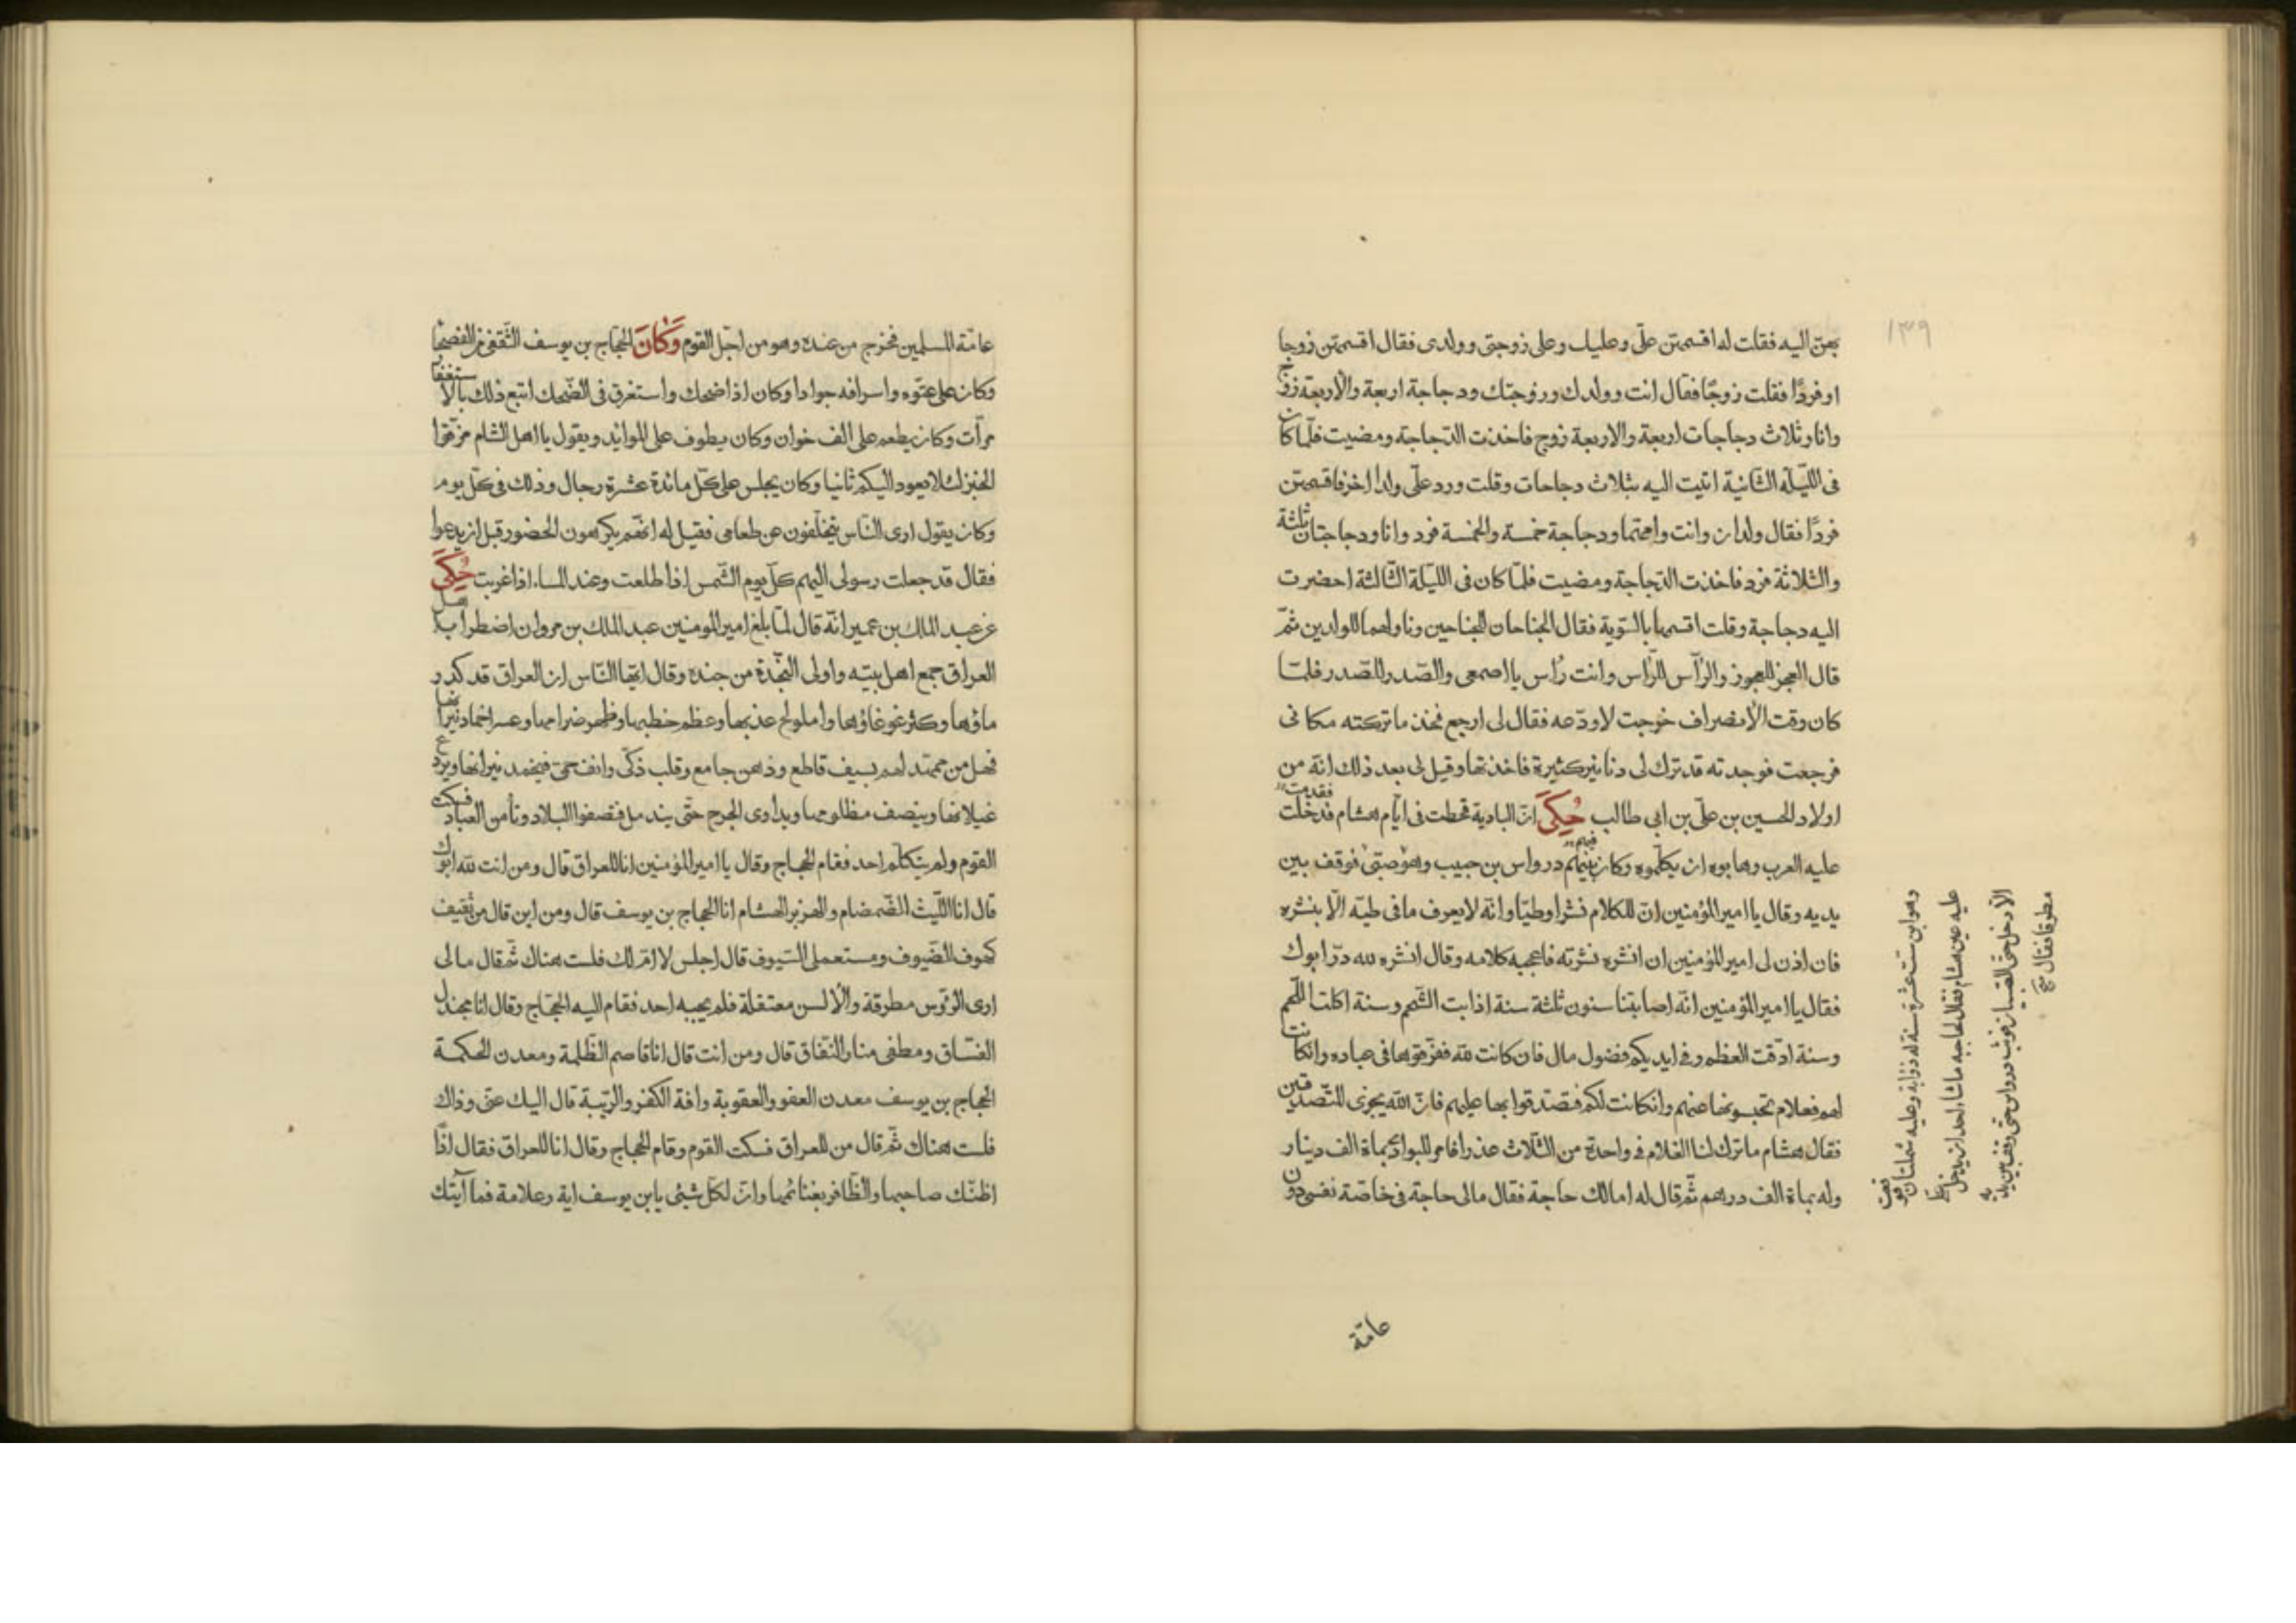 ١٣٩
بهن اليه فقلت له اقسمهن علىّ وعليك وعلى زوجتى وولدى فقال اقسمهن زوجا
او فردًا فقلت زوجًا فقال انت وولدك وزوجتك ودجاجة اربعة والاربعة زوج
وانا وثلاث دجاجات اربعة والاربعة زوج فاخذت الدّجاجة ومضيت فلمّا كان
فى اللّيلة الثّانية اتيت اليه بثلاث دجاجات وقلت ورد علىّ ولد اخر فاقسمهن
فردًا فقال ولدان وانت وامهما ودجاجة خمسة والخمسة فرد وانا ودجاجتان ثلثة
والثلاثة فرد فاخذت الدّجاجة ومضيت فلمّا كان فى الليلة الثّالثة احضرت
اليه دجاجة وقلت اقسمها بالسّوية فقال الجناحان للجناحين وناولهما للولدين ثمّ
قال العجز للعجوز والرّأس للرّاس وانت رأس يا اصمعى والصّدر للصّدر فلمّا
كان وقت الانصراف خرجت لاودّعه فقال لى ارجع فخذ ما تركته مكانى
فرجعت فوجدته قد ترك لى دنانير كثيرة فاخذتها وقيل لى بعد ذلك انّه من
اولاد الحسين بن علىّ بن ابى طالب حُكِىَ انّ البادية قحطت فى ايّام هشام فقدمت
عليه العرب وهابوه ان يكلّموه وكان فيهم درواس بن حبيب وهو صبىّ فوقف بين
يديه وقال يا امير المؤمنين انّ للكلام نشرا وطيّا وانّه لا يعرف ما فى طيّه الّا بنشره
فان اذن لى امير المؤمنين ان انشره نشرته فاعجبه كلامه وقال انشره لله درّ ابوك
فقال يا امير المؤمنين انّه اصابتنا سنون ثلثة سنة اذابت الشّحم وسنة اكلت اللّحم
وسنة ادقّت العظم وفى ايديكم فضول مال فان كانت لله ففرّقوها فى عباده وان كانت
لهم فعلام تحبسونها عنهم وان كانت لكم فتصدّقوا بها عليهم فانّ الله يجزى المتصّدّقين
فقال هشام ما ترك لنا الغلام فى واحدة من الثّلاث عذرا فامر للبوادى بمأة الف دينار
وله بمأة الف درهم ثمّ قال له امالك حاجة فقال مالى حاجة فى خاصّة نفسى دون
وهو ابن ست عشرة سنة له ذؤابة وعليه شملتان فوقعت
عليه عين هشام فقال لحاجبه ما شاء احد ان يدخل علىّ
الّا دخل حتى الصّبيان فوثب درواس حتى وقف بين يديه
مطرقا فقال
عامّة
عامّة المسلمين فخرج من عنده وهو من اجلّ القوم وَكَانَ الحجّاج بن يوسف الثّقفى من الفصحا
وكان على عتوّه واسرافه جوادا وكان اذا ضحك واستغرق فى الضّحك اتبع ذلك بالاستغفار
مرّات وكان يطعم على الف خوان وكان يطوف على الموائد ويقول يا اهل الشام مزّقوا
الخبز لئلا يعود اليكم ثانيا وكان يجلس على كلّ مائدة عشرة رجال وذلك فى كلّ يوم
وكان يقول ارى النّاس يتخلّفون عن طعامى فقيل له انّهم يكرهون الحضور قبل ان يدعوا
فقال قد جعلت رسولى اليهم كلّ يوم الشّمس اذا طلعت وعند المساء اذا غربت حُكِىَ
عن عبد الملك بن عمير انّه قال لمّا بلغ امير المومنين عبد الملك بن مروان اضطراب اهل
العراق جمع اهل بيته واولى النّجدة من جنده وقال ايّها النّاس ان العراق قد كدر
ماؤها وكثر غوغاؤها واملولح عذبها وعظم خطبها وظهر ضرامها وعسر اخماد نيرانها
فهل من ممهّد لهم بسيف قاطع وذهن جامع وقلب ذكىّ وانف حمىّ فيخمد نيرانها ويردع
غيلانها وينصف مظلومها ويداوى الجرح حتّى يندمل فتصفوا البلاد وتأمن العباد فسكت
القوم ولم يتكلّم احد فقام الحجاج وقال يا امير المؤمنين انا للعراق قال ومن انت لله ابوك
قال انا اللّيث الضّمضام والهزبر الهشام انا الحجاج بن يوسف قال ومن اين قال من ثقيف
كهوف الضّيوف ومستعملى السّيوف قال اجلس لا امّ لك فلست هناك ثمّ قال مالى
ارى الرّؤس مطرقة والالسن معتقلة فلم يجبه احد فقام اليه الحجّاج وقال انا مجندل
الفسّاق ومطفى منار النّفاق قال ومن انت قال انا قاصم الظّلمة ومعدن الحكمة
الحجاج بن يوسف معدن العفو والعقوبة وافة الكفر والرّيبة قال اليك عنّى وذاك
فلست هناك ثمّ قال من للعراق فسكت القوم وقام الحجاج وقال انا للعراق فقال اذًا
اظنّك صاحبها والظّافر بغنائمها وان لكلّ شئى يابن يوسف اية وعلامة فما آيتك